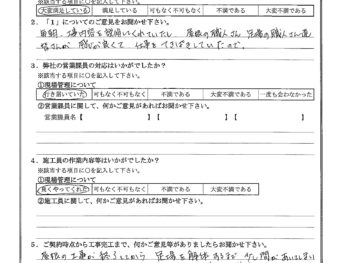 ※該当する項目に○を記入して下さい。
大変満足している 満足している 可もなく不可もなく 不満である 大変不満である
2．「1」についてのご意見をお聞かせ下さい。
毎朝、工事内容を説明いただいていた。屋根の職人さん、足場の職人さん達
皆さんが 仕事をてきぱきしていたので。
3．弊社の営業課員の対応はいかがでしたか？
※該当する項目に○を記入して下さい。
①現場管理について
行き届いていた 可もなく不可もなく 不満である 大変不満である 一度も会わなかった
②営業課員に関して、何かご意見があればお聞かせ下さい。
営業課員名【 】【 】【 】
4．施工員の作業内容等はいかがでしたか？
※該当する項目に○を記入して下さい。
①現場管理について
良くやってくれた 可もなく不可もなく 不満である 大変不満である
②施工員に関して、何かご意見があればお聞かせ下さい。
5．ご契約時点から工事完工まで、何かご意見等がありましたらお聞かせ下さい。
屋根の工事が終了してから 足場を解体するまで 少し間があいてしまい